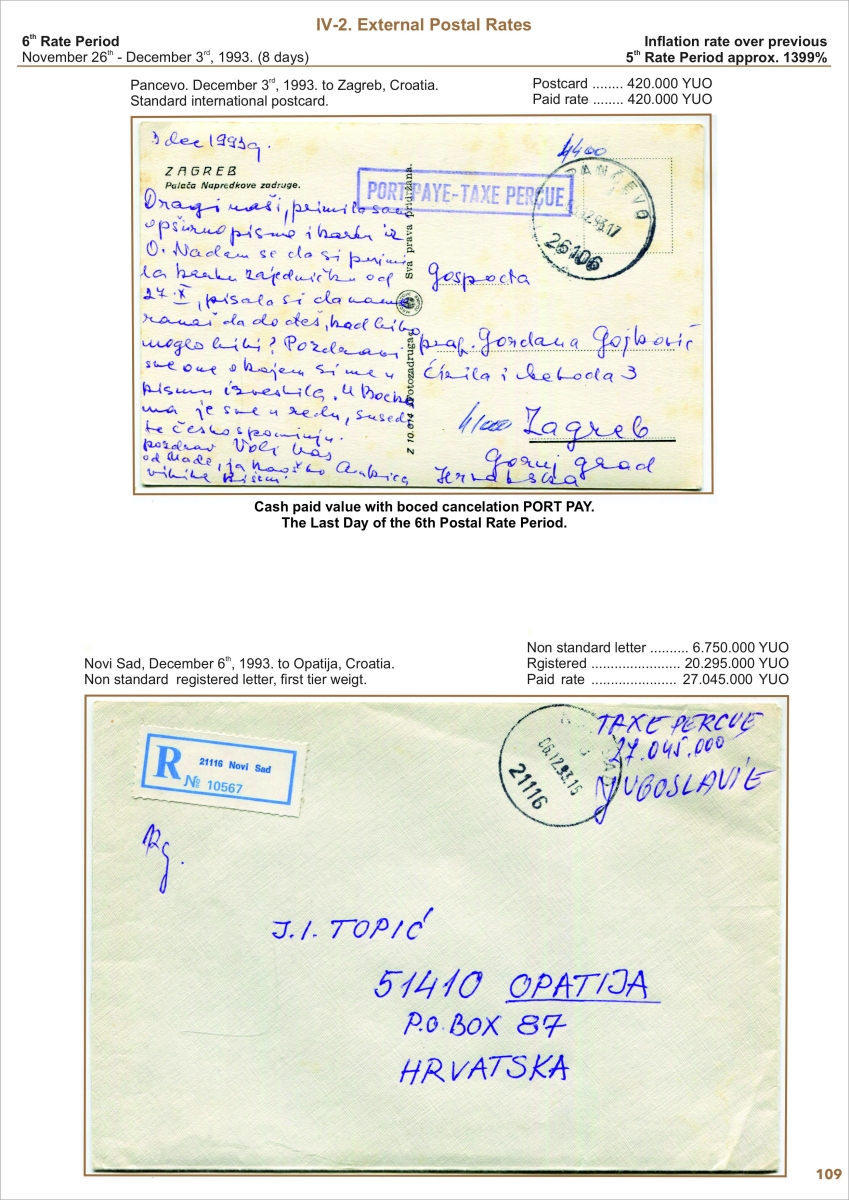 IV-2. External Postal Rates
6th Rate Period
November 26th - December 3rd, 1993. (8 days)
Inflation rate over previous
5th Rate Period approx. 1399%
Pancevo. December 3rd, 1993. to Zagreb, Croatia.
Standard international postcard.
Postcard ........ 420.000 YUO
Paid rate ........ 420.000 YUO
3 dec 1993g.
ZAGREB
Palača Napredkove zadruge.
PORT PAYE-TAXE PERCUE
PANČEVO
26106
Dragi naši, primilo sam
opširno pismo i kartu iz
O. Nadam se da si primi
la kartu zajedničku od
27. X, pisala si da nam
možeš da dođeš, kad bi to
moglo biti? Pozdravi
sve one o kojem si me u
pismu izvestila. U Bočn
ma je sve u redu, sused
te često spominju.
pozdrav Voli Vas
od Nade,
Sva prava pridržana.
Z 10.614 Fotozadruga
Gospođa
prof. Gordana Gojković
Ćirila i Metoda 3
Zagreb
Gornji grad
Hrvatska
Cash paid value with boced cancelation PORT PAY.
The Last Day of the 6th Postal Rate Period.
Novi Sad, December 6th, 1993. to Opatija, Croatia.
Non standard registered letter, first tier weigt.
Non standard letter .......... 6.750.000 YUO
Rgistered ....................... 20.295.000 YUO
Paid rate ...................... 27.045.000 YUO
R
21116 Novi Sad
№ 10567
06.12.93.15
21116
TAXE PERCUE
27.045.000
YUGOSLAVIE
Rg.
J.I. TOPIĆ
51410 OPATIJA
P.O. BOX 87
HRVATSKA
109